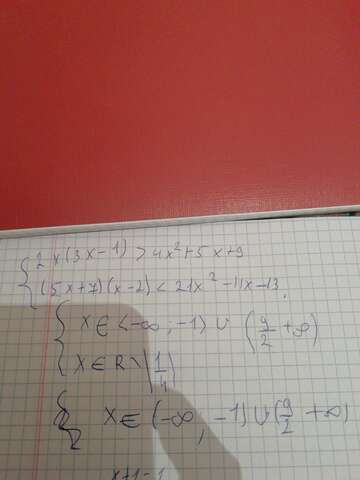 { 2x(3x-1) > 4x²+5x+9
(5x+7)(x-2) < 21x²-11x-13,
{ x∈<-∞; -1) ∪ (9/2 +∞)
x∈R\(1/4)
{ x∈(-∞, -1)∪(9/2 +∞)
x+1-1